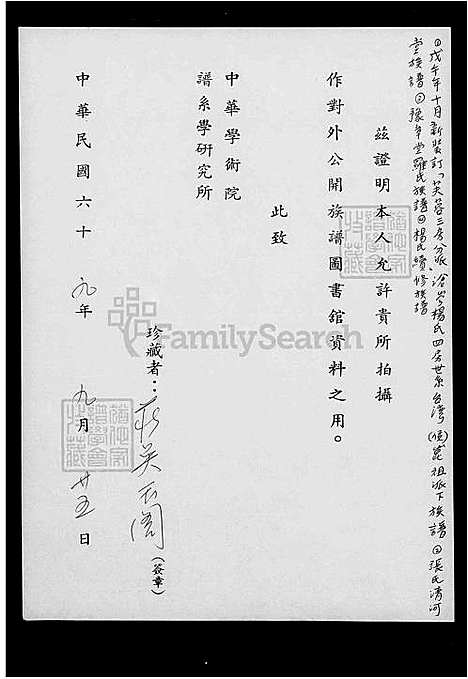 ①戊午年十月新裝訂「芙蓉三房分派、滄岑楊氏四房世系台灣(侯崑祖派下族譜②張氏清河
堂族譜③豫章堂羅氏族譜④楊氏續修族譜
茲證明本人允許貴所拍攝
作對外公開族譜圖書舘資料之用。
此致
中華學術院
譜系學研究所
珍藏者：莊吴玉阁(簽章)
中華民國六十九年九月廿五日
FamilySearch